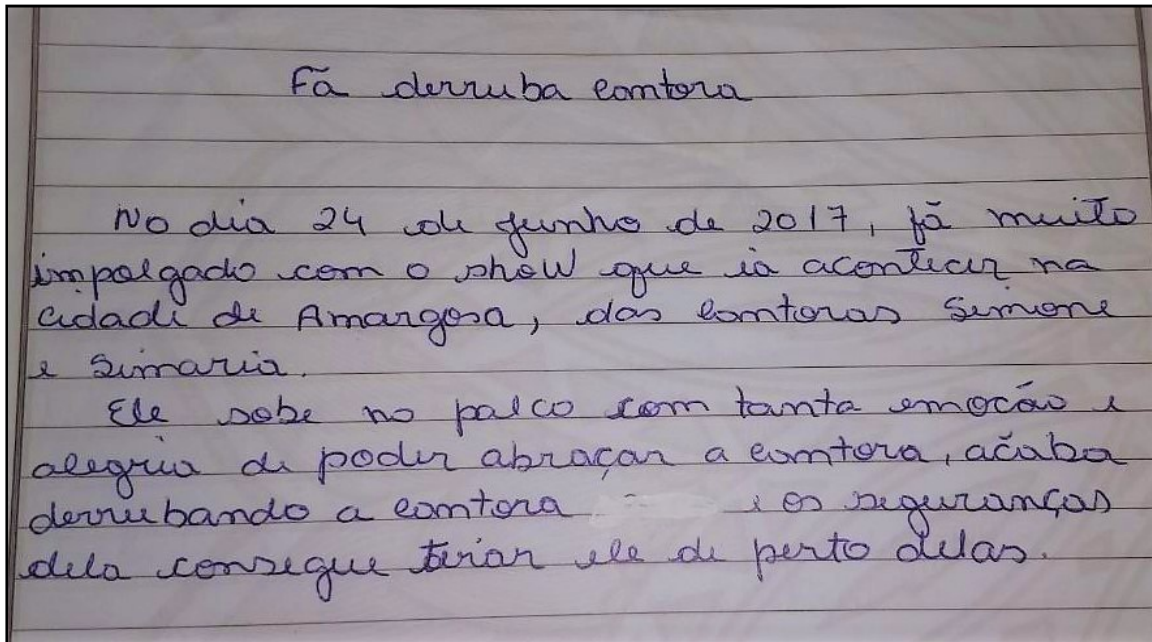 Fã derruba comtora
No dia 24 de junho de 2017, fã muito
impolgado com o show que ia acontecer na
cidade de Amargosa, das comtoras Simone
e Simaria.
Ele sobe no palco com tanta emocão e
alegria de poder abraçar a comtora, acaba
derrubando a comtora e os seguranças
dela consegue tirar ele de perto delas.